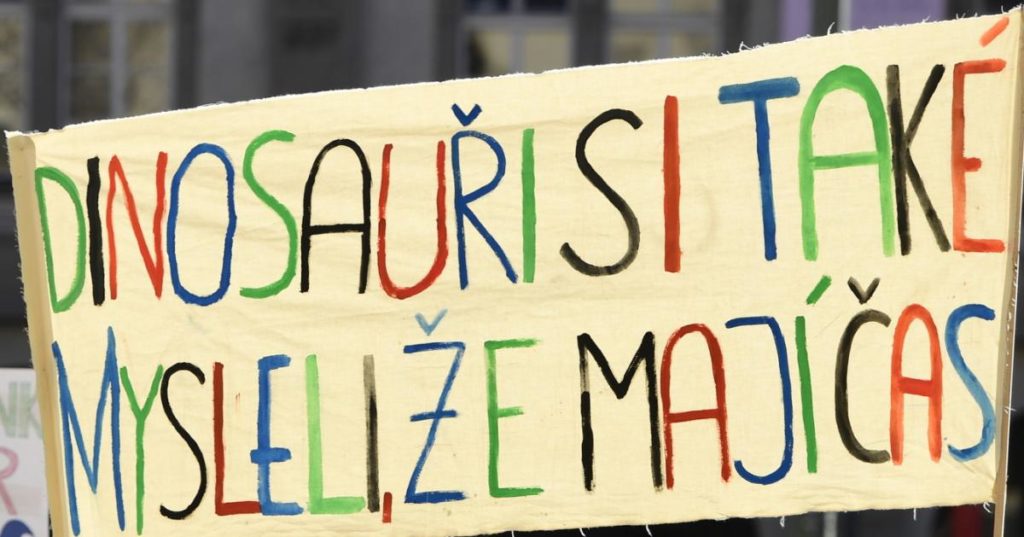 DINOSAUŘI SI TAKÉ
MYSLELI, ŽE MAJÍ ČAS